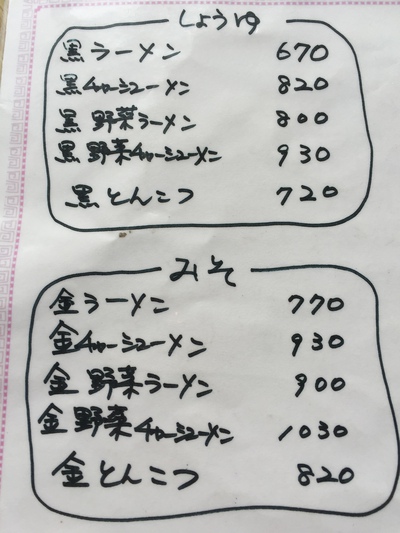 しょうゆ
黒ラーメン 670
黒チャーシューメン 820
黒 野菜ラーメン 800
黒 野菜チャーシューメン 930
黒 とんこつ 720
みそ
金ラーメン 770
金チャーシューメン 930
金 野菜ラーメン 900
金 野菜チャーシューメン 1030
金 とんこつ 820